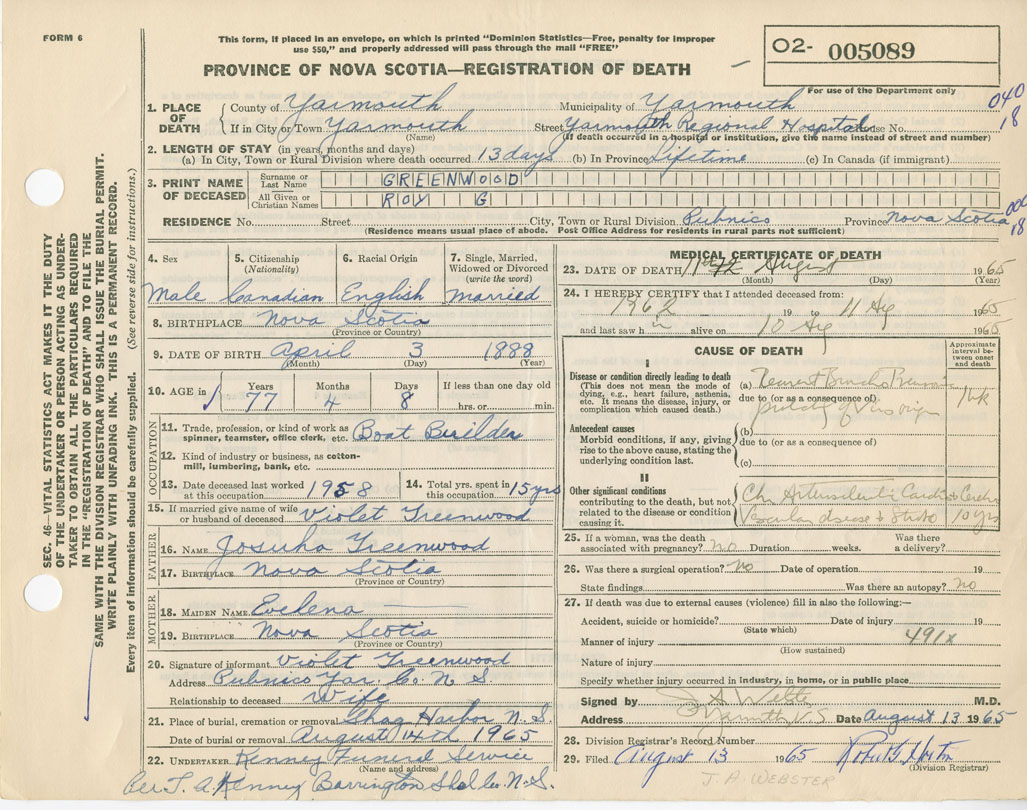 FORM 6
This form, if placed in an envelope, on which is printed "Dominion Statistics—Free, penalty for improper
use $50," and properly addressed will pass through the mail "FREE"
PROVINCE OF NOVA SCOTIA—REGISTRATION OF DEATH
02- 005089
For use of the Department only
040
18
SEC. 46—VITAL STATISTICS ACT MAKES IT THE DUTY
OF THE UNDERTAKER OR PERSON ACTING AS UNDER-
TAKER TO OBTAIN ALL THE PARTICULARS REQUIRED
IN THE "REGISTRATION OF DEATH" AND TO FILE THE
SAME WITH THE DIVISION REGISTRAR WHO SHALL ISSUE THE BURIAL PERMIT.
WRITE PLAINLY WITH UNFADING INK. THIS IS A PERMANENT RECORD.
Every item of information should be carefully supplied. (See reverse side for instructions.)
1. PLACE OF DEATH County of Yarmouth Municipality of Yarmouth
If in City or Town Yarmouth Street Yarmouth Regional Hospital House No.
(Name) (If death occurred in a hospital or institution, give the name instead of street and number)
2. LENGTH OF STAY (in years, months and days)
(a) In City, Town or Rural Division where death occurred 13 days (b) In Province Lifetime (c) In Canada (if immigrant)
3. PRINT NAME OF DECEASED
Surname or Last Name GREENWOOD
All Given or Christian Names ROY G
RESIDENCE No. Street City, Town or Rural Division Pubnico Province Nova Scotia
(Residence means usual place of abode. Post Office Address for residents in rural parts not sufficient)
18
4. Sex 5. Citizenship (Nationality) 6. Racial Origin 7. Single, Married, Widowed or Divorced (write the word)
Male Canadian English Married
8. BIRTHPLACE Nova Scotia
(Province or Country)
9. DATE OF BIRTH April 3 1888
(Month) (Day) (Year)
10. AGE in Years Months Days If less than one day old
77 4 8 hrs. or min.
OCCUPATION
11. Trade, profession, or kind of work as spinner, teamster, office clerk, etc. Boat Builder
12. Kind of industry or business, as cotton-mill, lumbering, bank, etc.
13. Date deceased last worked at this occupation 1958 14. Total yrs. spent in this occupation 15 yrs
15. If married give name of wife or husband of deceased Violet Greenwood
FATHER
16. NAME Josuha Greenwood
17. BIRTHPLACE Nova Scotia
(Province or Country)
MOTHER
18. MAIDEN NAME Evelena
19. BIRTHPLACE Nova Scotia
(Province or Country)
20. Signature of informant Violet Greenwood
Address Pubnico Yar. Co. N. S.
Relationship to deceased Wife
21. Place of burial, cremation or removal Shag Harbor N. S.
Date of burial or removal August 14th 1965
22. UNDERTAKER Kenney Funeral Service
(Name and address)
Per. T. A. Kenney Barrington Shel. Co. N. S.
MEDICAL CERTIFICATE OF DEATH
23. DATE OF DEATH August 1965
(Month) (Day) (Year)
24. I HEREBY CERTIFY that I attended deceased from:
1962 19 to 11 Ag 1965
and last saw h im alive on 10 Ag 1965
CAUSE OF DEATH
Approximate interval between onset and death
I
Disease or condition directly leading to death
(This does not mean the mode of dying, e.g., heart failure, asthenia, etc. It means the disease, injury, or complication which caused death.)
(a) 1 wk
due to (or as a consequence of)
Antecedent causes
Morbid conditions, if any, giving rise to the above cause, stating the underlying condition last.
(b)
due to (or as a consequence of)
(c)
II
Other significant conditions
contributing to the death, but not related to the disease or condition causing it.
Vascular disease 10 yrs
25. If a woman, was the death associated with pregnancy? no Duration weeks. Was there a delivery?
26. Was there a surgical operation? no Date of operation 19
State findings Was there an autopsy? no
27. If death was due to external causes (violence) fill in also the following:—
Accident, suicide or homicide? Date of injury 19
(State which)
Manner of injury 491x
(How sustained)
Nature of injury
Specify whether injury occurred in industry, in home, or in public place
Signed by J A Webster M.D.
Address Yarmouth N. S. Date August 13 1965
28. Division Registrar's Record Number
29. Filed August 13 1965
(Division Registrar)
J. A. WEBSTER